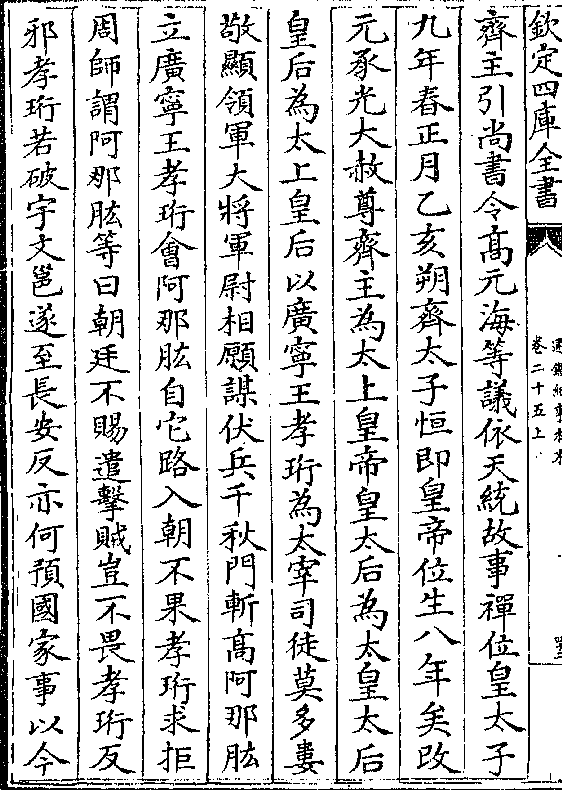 欽定四庫全書
通鑑紀事本末
卷二十五上
齊主引尚書令高元海等議依天統故事禪位皇太子
九年春正月乙亥朔齊太子恒即皇帝位生八年矣改
元承光大赦尊齊主為太上皇帝皇太后為太皇太后
皇后為太上皇后以廣寧王孝珩為太宰司徒莫多婁
敬顯領軍大將軍尉相願謀伏兵千秋門斬高阿那肱
立廣寧王孝珩會阿那肱自它路入朝不果孝珩求拒
周師謂阿那肱等曰朝廷不賜遣擊賊豈不畏孝珩反
邪孝珩若破宇文邕遂至長安反亦何預國家事以今